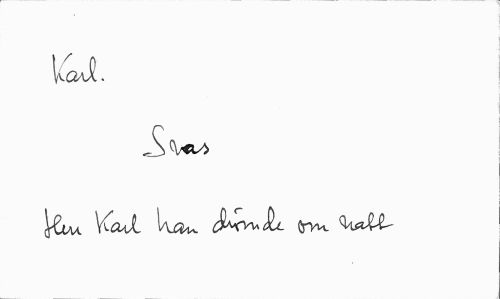 Karl.
Svas
Herr Karl han drömde om natt